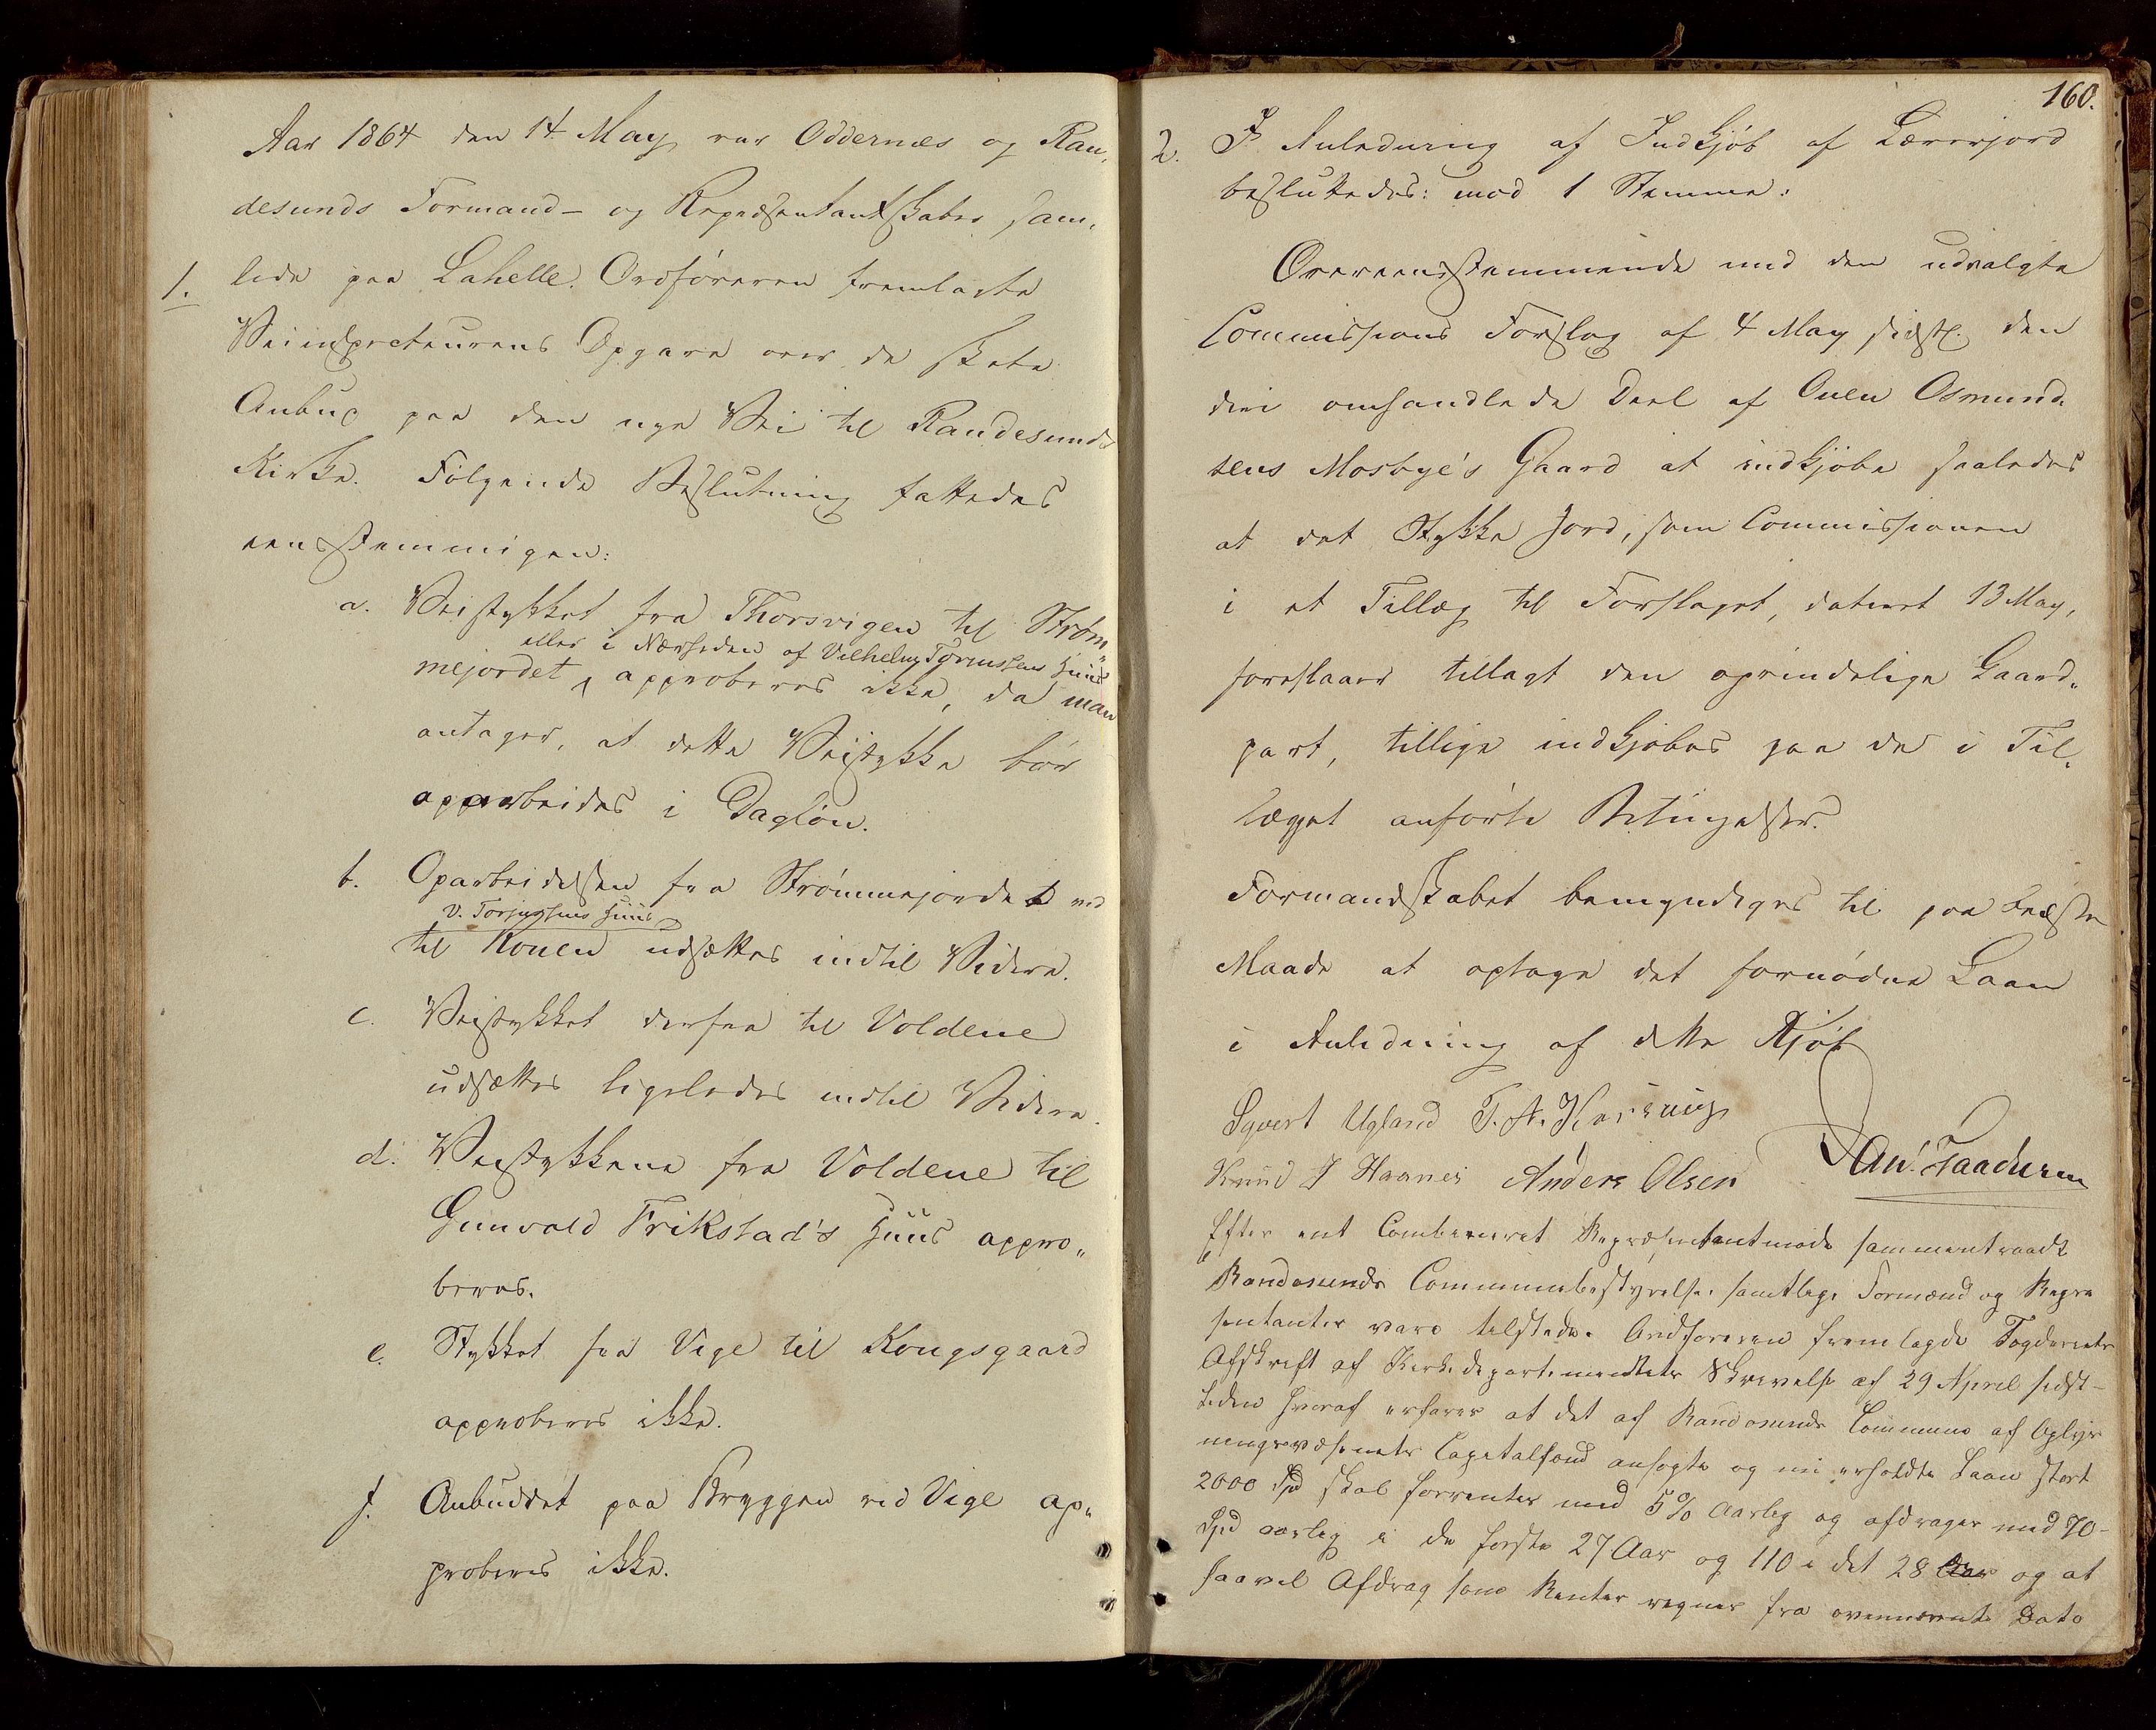 Aar 1864 den 14 May var Oddernæs og Ran„
desunds Formand- og Repræsentantskaber sam„
1. lede paa Lahelle. Ordføreren fremlagte
Veiinspecteurens Opgave over de skete
Anbud paa den nye Vei til Randesunds
Kirke. Følgende Beslutning fattedes
eensstemmigen:
a. Veistykket fra Thorsvigen til Strøm„
eller i Nærheden af Vilhelm Huus
mejordet approberes ikke, da man
antager, at dette Veistykke bør
opparbeides i Dagløn.
b. Oparbeidelsen fra Strømmejordet ved
V. Torjussens Huus
til Ronen udsættes indtil Videre.
c. Veistykket derfra til Voldene
udsættes ligeledes indtil Videre.
d. Veistykkene fra Voldene til
Gunvald Frikstad's Huus appro„
beres.
e. Stykket fra Vige til Kongsgaard
approberes ikke.
f. Anbuddet paa Bryggen ved Vige ap„
proberes ikke.
160.
2. I Anledning af Indkjøb af Lærerjord
besluttedes: mod 1 Stemme:
Overeensstemmende med den udvalgte
Commissions Forslag af 4 May sidstl. den
deri omhandlede Deel af Ouen Osmund„
sens Mosbye's Gaard at indkjøbe saaledes
at det Stykke Jord, som Commissionen
i et Tillæg til Forslaget, dateret 13 May,
foreslaaer tillagt den oprindelige Gaard„
part, tillige indkjøbes paa de i Til„
lægget anførte Betingelser.
Formandskabet bemyndiges til paa bedste
Maade at optage det fornødne Laan
i Anledning af dette Kjøb
Syvert Ugland T. A.
Knud J Haanes Anders Olsen An. Faadum
Efter eet Combineret Repræsentantmøde sammentraadt
Randesunds Communebestyrelse. samtlige Formænd og Repræ
sentanter vare tilstede. Ordføreren fremlagde Fogderiets
Afskrift af Kirkedepartementets Skrivelse af 29 April sidst-
leden hvoraf erfares at det af Randesunds Commune af Oplys
ningsvæsenets Capitalfond ansøgte og nu erholdte Laan stort
2000 Spd skal forrentes med 5% Aarlig og afdrages med 70-
Spd aarlig i de første 27 Aar og 110 i det 28 Aar og at
saavel Afdrag som Renter regnes fra ovennævnte Dato